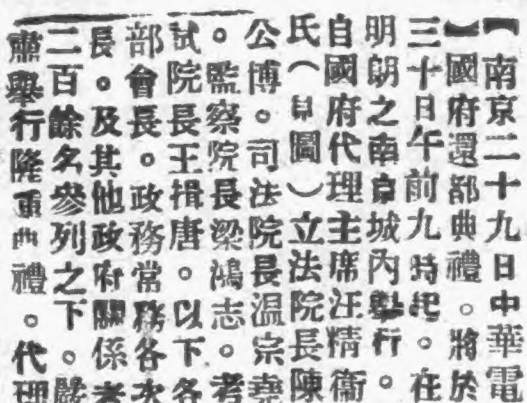 【南京二十九日中華電
】國府還都典禮。將於
三十日午前九時起。在
明朗之南京城內舉行。
自國府代理主席汪精衞
氏（見圖）立法院長陳
公博。司法院長温宗堯
。監察院長梁鴻志。考
試院長王揖唐。以下各
部會長。政務常務各次
長。及其他政府關係者
二百餘名參列之下。嚴
肅舉行隆重典禮。代理